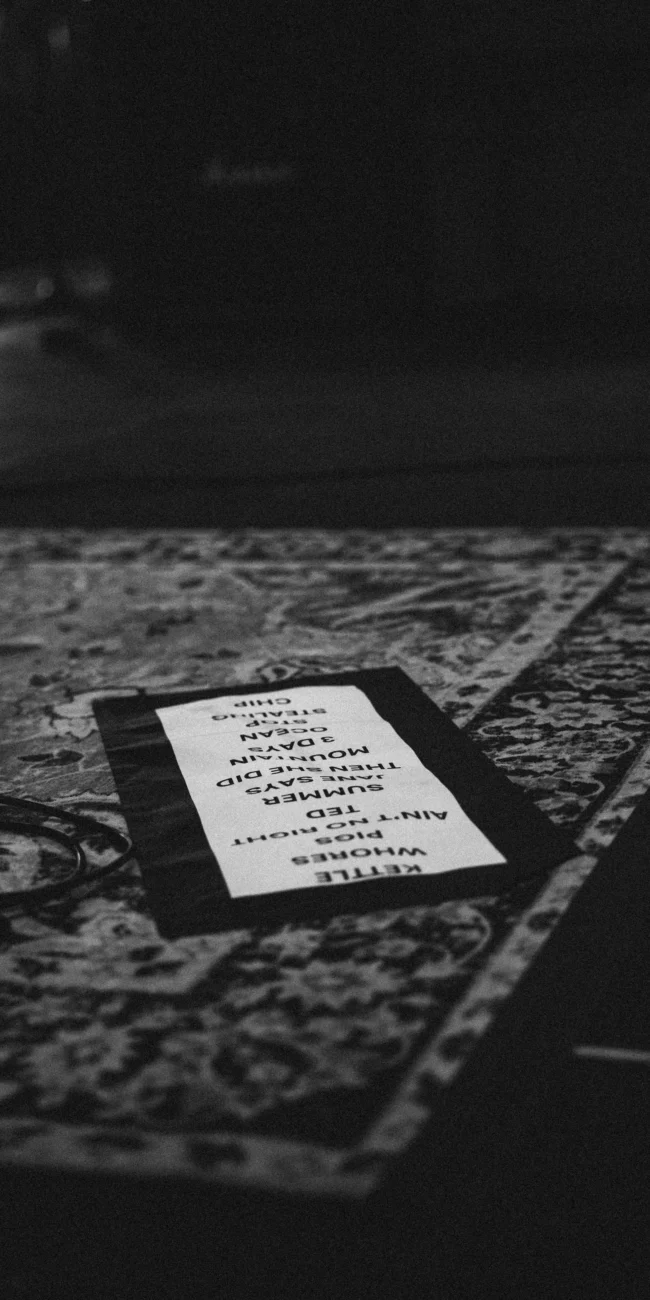 KETTLE
WHORES
PIGS
AIN'T NO RIGHT
TED
SUMMER
JANE SAYS
THEN SHE DID
MOUNTAIN
3 DAYS
OCEAN
STOP
STEALING
CHIP